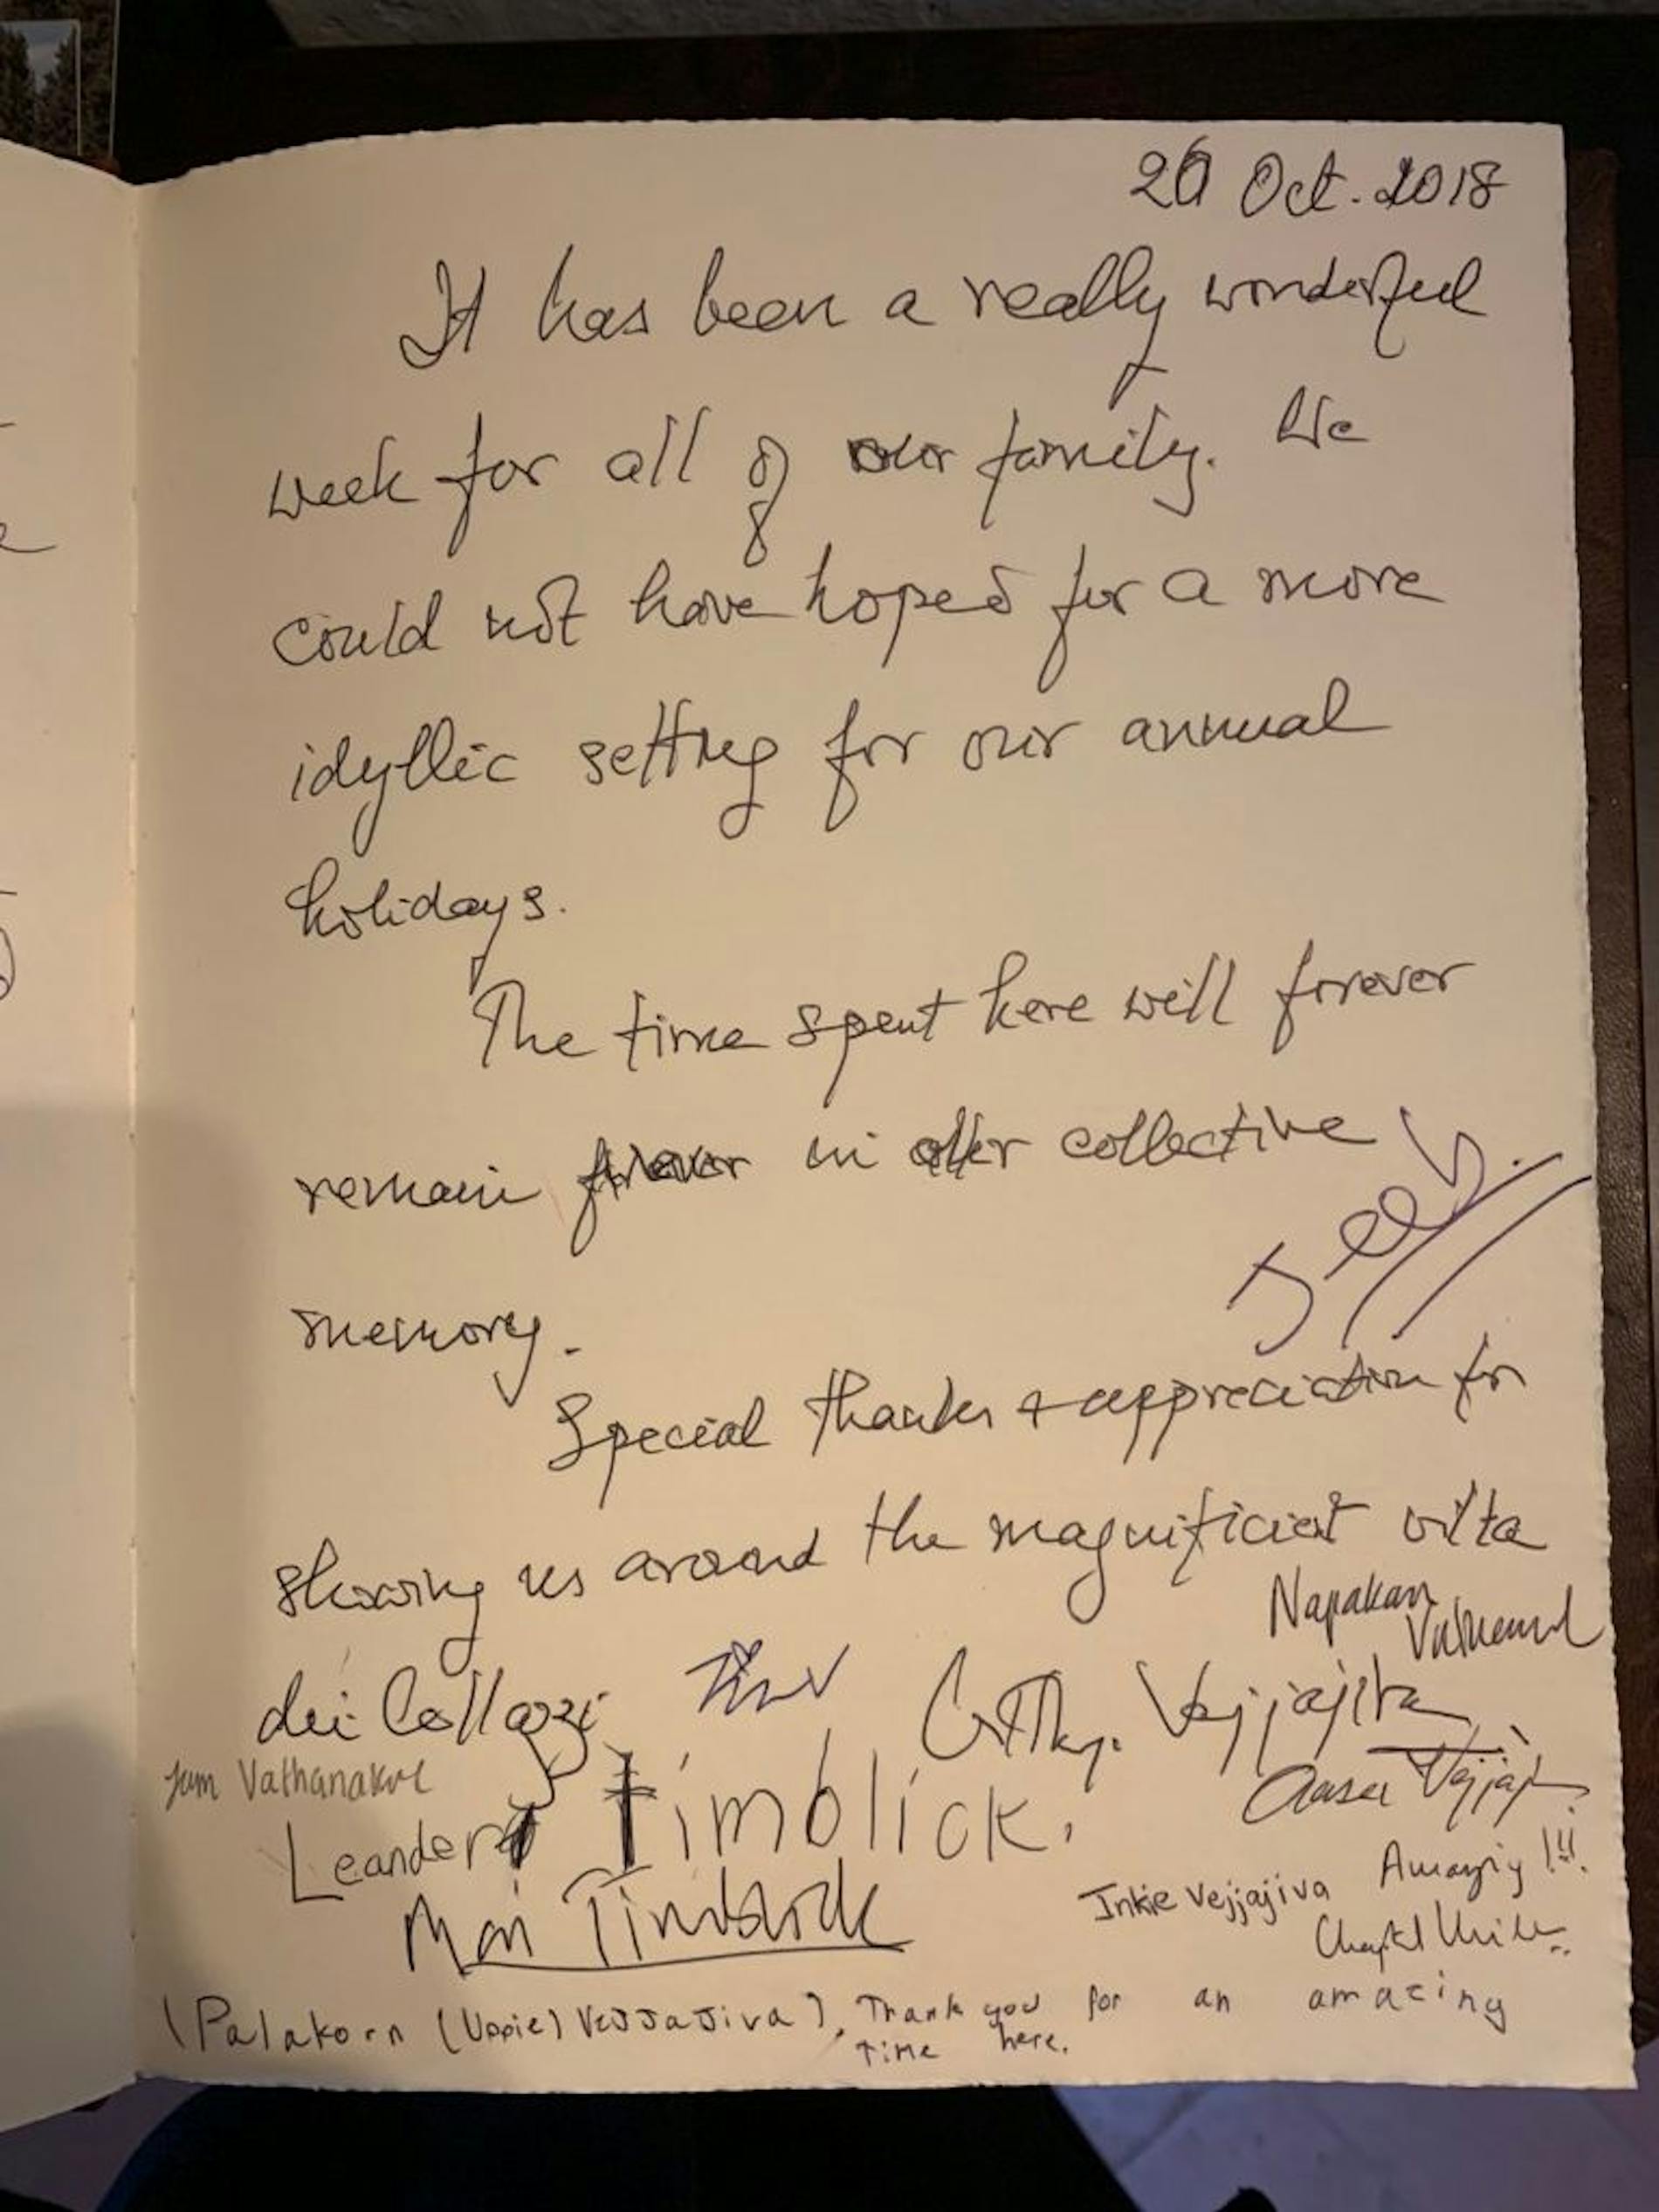 26 Oct. 2018
It has been a really wonderful
week for all of our family. We
could not have hoped for a more
idyllic setting for our annual
holidays.
The time spent here will forever
remain in our collective
memory.
Jeeb.
Special thanks + appreciation for
showing us around the magnificient villa
dei Collazzi
Napakarn
Cathy. Vejjajiva
Jum Vathanakul
Leander Timblick.
Vejjaj
Mai Timblick
Inkie Vejjajiva
Amazing !!!
(Palakorn (Uppie) Vejjajiva), Thank you for an amazing
time here.